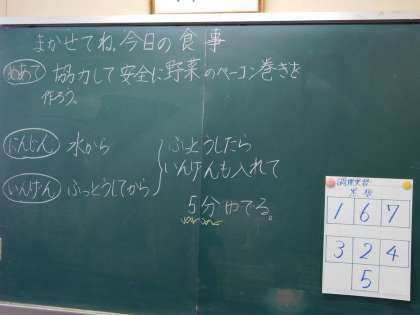 まかせてね。今日の食事
めあて 協力して安全に野菜のベーコン巻きを
作ろう。
にんじん 水から
いんげん ふっとうしてから
ふっとうしたら
いんげんも入れて
5分ゆでる。
調理実習
1 6 7
3 2 4
5